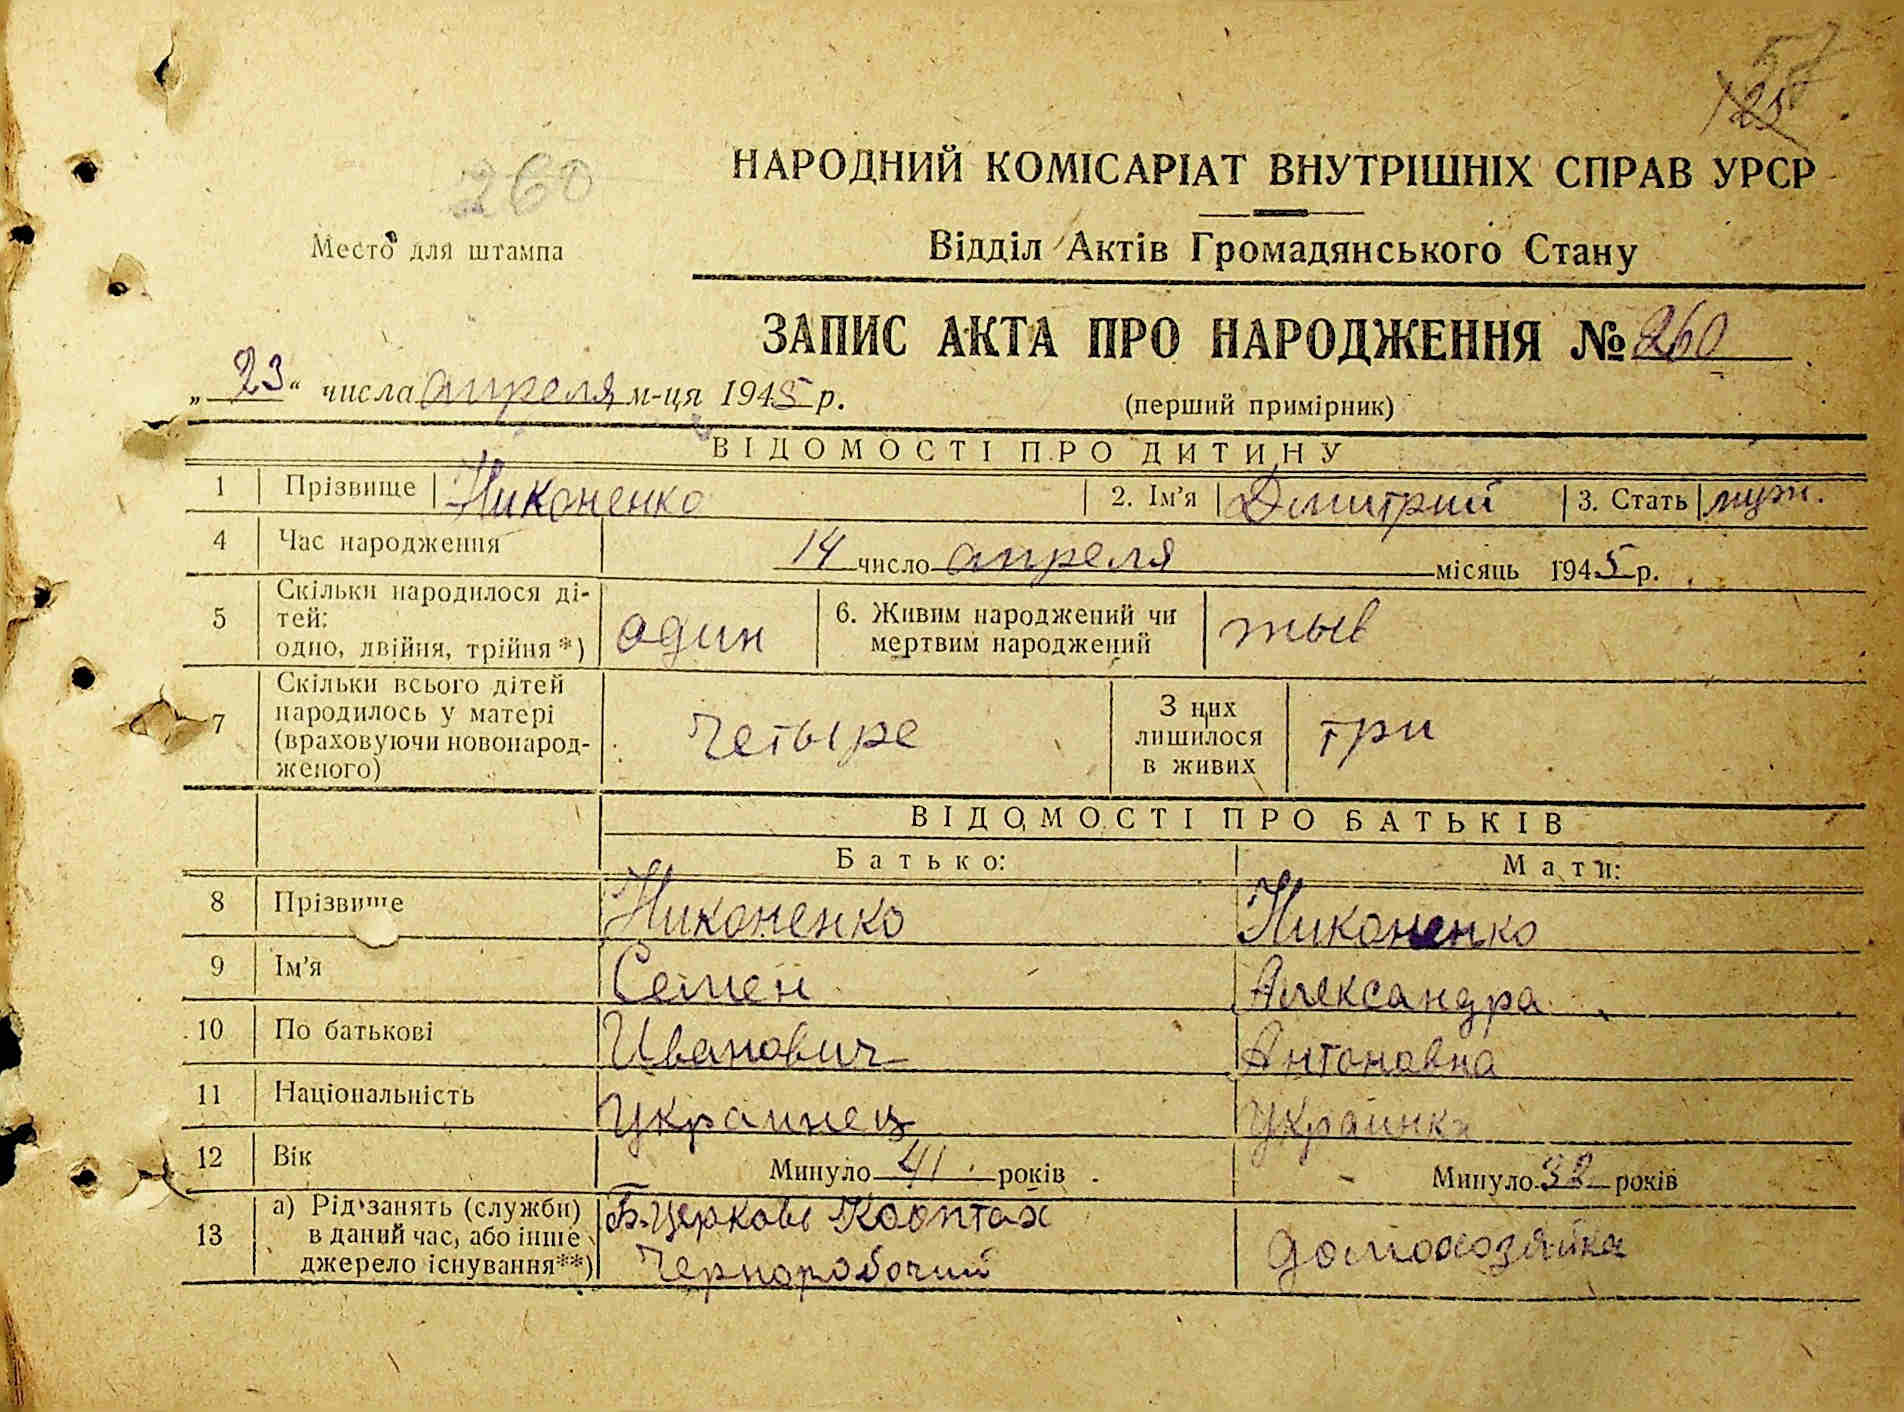 57
125
НАРОДНИЙ КОМІСАРІАТ ВНУТРІШНІХ СПРАВ УРСР
260
Место для штампа
Відділ Актів Громадянського Стану
ЗАПИС АКТА ПРО НАРОДЖЕННЯ № 260
„23“ числа апреля м-ця 1945 р.
(перший примірник)
ВІДОМОСТІ ПРО ДИТИНУ
1 Прізвище Никоненко 2. Ім'я Дмитрий 3. Стать муж.
4 Час народження 14 число апреля місяць 1945 р.
5 Скільки народилося ді-
тей:
одно, двійня, трійня *) один 6. Живим народжений чи
мертвим народжений жыв
7 Скільки всього дітей
народилось у матері
(враховуючи новонарод-
женого) четыре З них
лишилося
в живих три
ВІДОМОСТІ ПРО БАТЬКІВ
Батько: Мати:
8 Прізвище Никоненко Никоненко
9 Ім'я Семен Александра
10 По батькові Иванович Антоновна
11 Національність Украинец Украинка
12 Вік Минуло 41 років Минуло 32 років
13 а) Рід занять (служби)
в даний час, або інше
джерело існування**) Б-Церковь
Чернорабочий домохозяйка